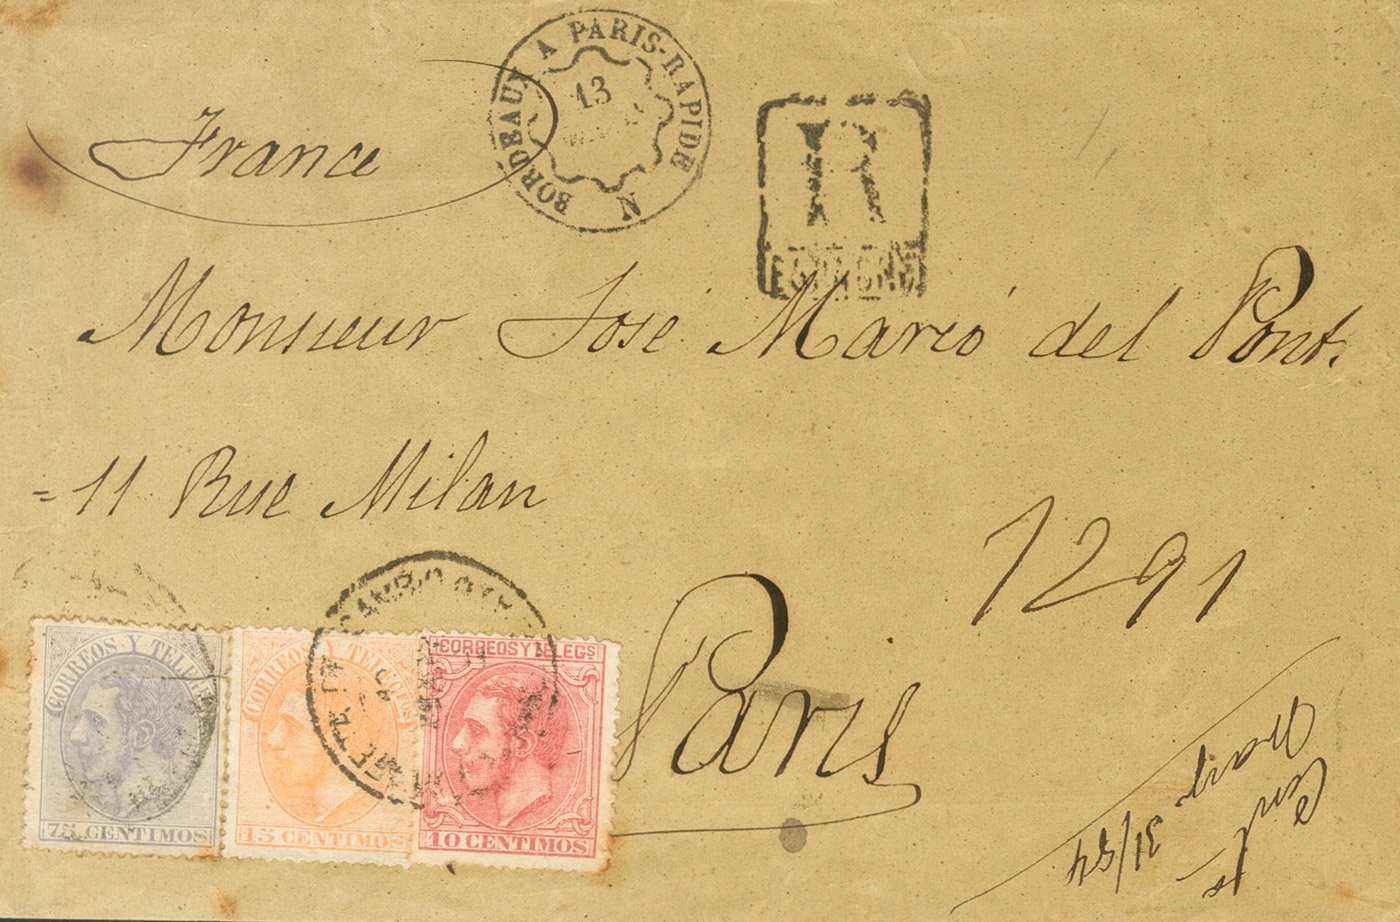 BORDEAUX A PARIS-RAPIDE N
13
R
France
Monsieur José Mario del Pont.
=11 Rue Milan
1291
Paris
CORREOS Y TELE
75 CENTIMOS
CORREOS Y TELEGOS
15 CENTIMOS
CORREOS Y TELEGS
10 CENTIMOS
31/84